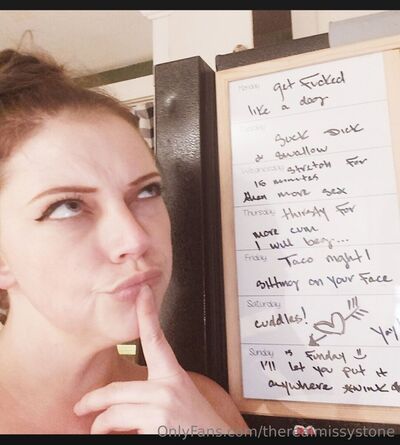 Monday get Fucked
like a dog
Suck Dick
& swallow
Wednesday stretch for
15 minutes
then more sex
Thursday thirsty for
more cum
I will beg...
Friday Taco night!
sitting on your Face
Saturday
cuddles!
Yay!
Sunday is Funday
I'll let you put it
anywhere *wink*
OnlyFans.com/therealmissystone